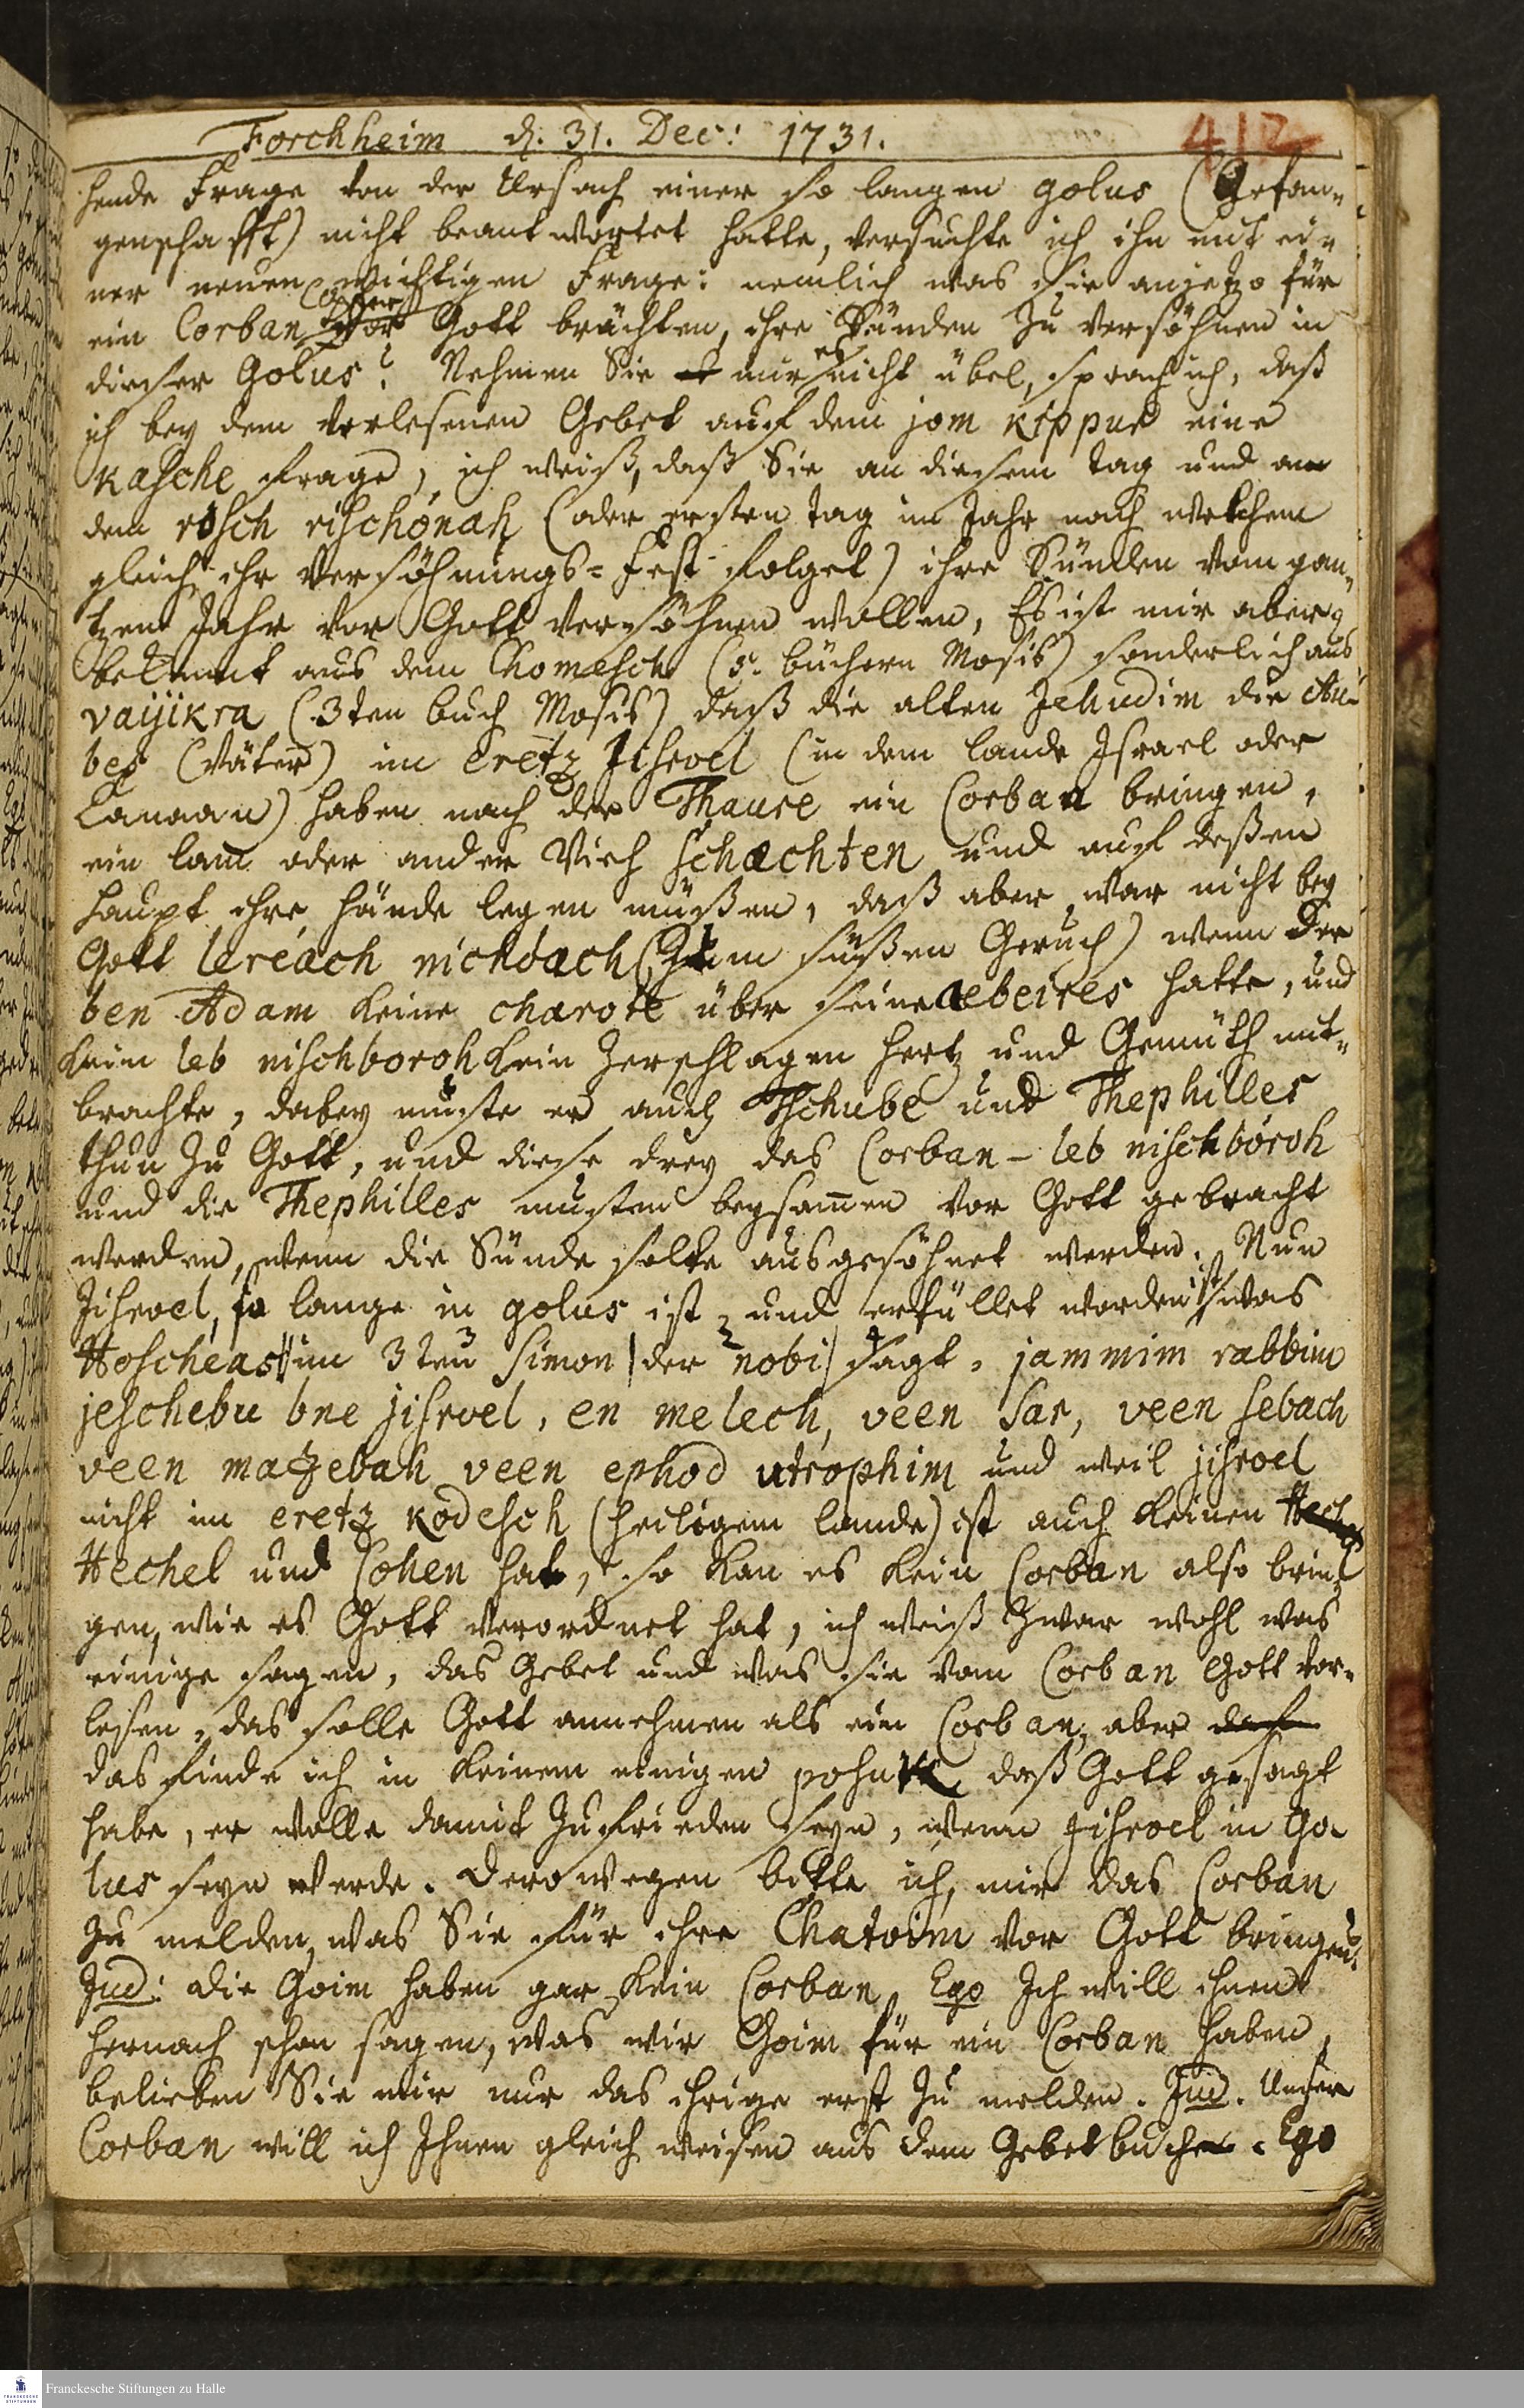 Forchheim d. 31. Dec: 1731.
412
hende Frage von der Ursach einer so langen golus (Gefan-
genschafft) nicht beantwortet hatte, versuchte ich ihn mit ei-
ner neuen wichtigen Frage: nemlich was sie anjetzo für
ein Corban (Opfer) vor Gott brächten, ihre Sünden zu versöhnen in
dieser Golus? Nehmen Sie mir es nicht übel, sprach ich, daß
ich bey dem verlesenen Gebet auf dem jom kippur eine
kasche frage, ich weiß, daß Sie an diesem tag und an
dem rosch rischonah (oder ersten tag im Jahr nach welchem
gleich ihr Versöhnungs-Fest folget) ihre Sünden vom gan-
tzen Jahr vor Gott versöhnen wollen, Es ist mir aber
bekannt aus dem Chomesch (5. büchern Mosis) sonderlich aus
vayikra (3ten buch Mosis) daß die alten Jehudim die Au-
bes (Väter) im Eretz Jisroel (in dem lande Israel oder
Canaan) haben nach der Thaure ein Corban bringen,
ein lam̄ oder ander Vieh schæchten und auf deßen
haupt ihre hände legen müßen, daß aber war nicht bey
Gott lereach nichoach (Zum süßen Geruch) wenn der
ben Adam keine charote über seine aebeires hatte, und
kein leb nischboroh kein zerschlagen hertz und Gemüth mit-
brachte, dabey muste er auch Tschube und Thephilles
thun zu Gott, und diese drey das Corban - leb nischboroh
und die Thephilles musten beysam̄en vor Gott gebracht
werden, wenn die Sünde solte ausgesöhnet werden. Nun
Jisroel, so lange in golus ist, und erfüllet worden ist was
Hoscheas im 3ten Simon der nobi sagt, jammim rabbim
jeschebu bne jisroel, en melech, veen sar, veen sebach
veen mazebah veen ephod utrophim und weil jisroel
nicht im eretz kodesch (heiligem lande) ist auch keinen
Hechel und Cohen hat, so kan es kein Corban also brin-
gen, wie es Gott verordnet hat, ich weiß zwar wohl was
einige sagen, das Gebet und was sie vom Corban Gott vor-
lesen, das solle Gott annehmen als ein Corban, aber
das finde ich in keinem einigen pohuk, daß Gott gesagt
habe, er wolle damit zufrieden seyn, wenn jisroel in Go-
lus seyn werde. Derowegen bitte ich, mir das Corban
zu melden, was Sie für ihre Chatoim vor Gott bringen?
Jud: die Goim haben gar kein Corban, Ego Ich will ihnen
hernach schon sagen, was wir Goim für ein Corban haben,
belieben Sie mir nur das ihrige erst zu melden. Jud. Unser
Corban will ich Ihnen gleich weisen aus dem Gebetbuche. Ego
Franckesche Stiftungen zu Halle